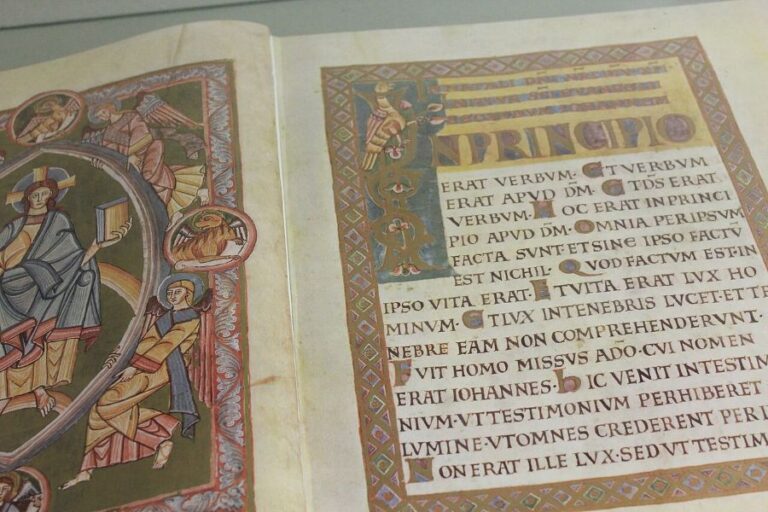 INPRINCIPIO
ERAT VERBVM· ETVERBVM
ERAT APVD DM̄· ET DS̄ ERAT
VERBVM· HOC ERAT INPRINCI
PIO APVD DM̄· OMNIA PERIPSVM
FACTA SVNT·ET SINE IPSO FACTV̄
EST NICHIL· QVOD FACTVM EST·IN
IPSO VITA ERAT· ET VITA ERAT LVX HO
MINVM· ET LVX INTENEBRIS LVCET·ET TE
NEBRE EAM NON COMPREHENDERVNT·
FVIT HOMO MISSVS ADO· CVI NOMEN
ERAT IOHANNES· HIC VENIT INTESTIM
NIVM·VT TESTIMONIVM PERHIBERET
LVMINE·VTOMNES CREDERENT PER
NON ERAT ILLE LVX·SED VT TESTIM